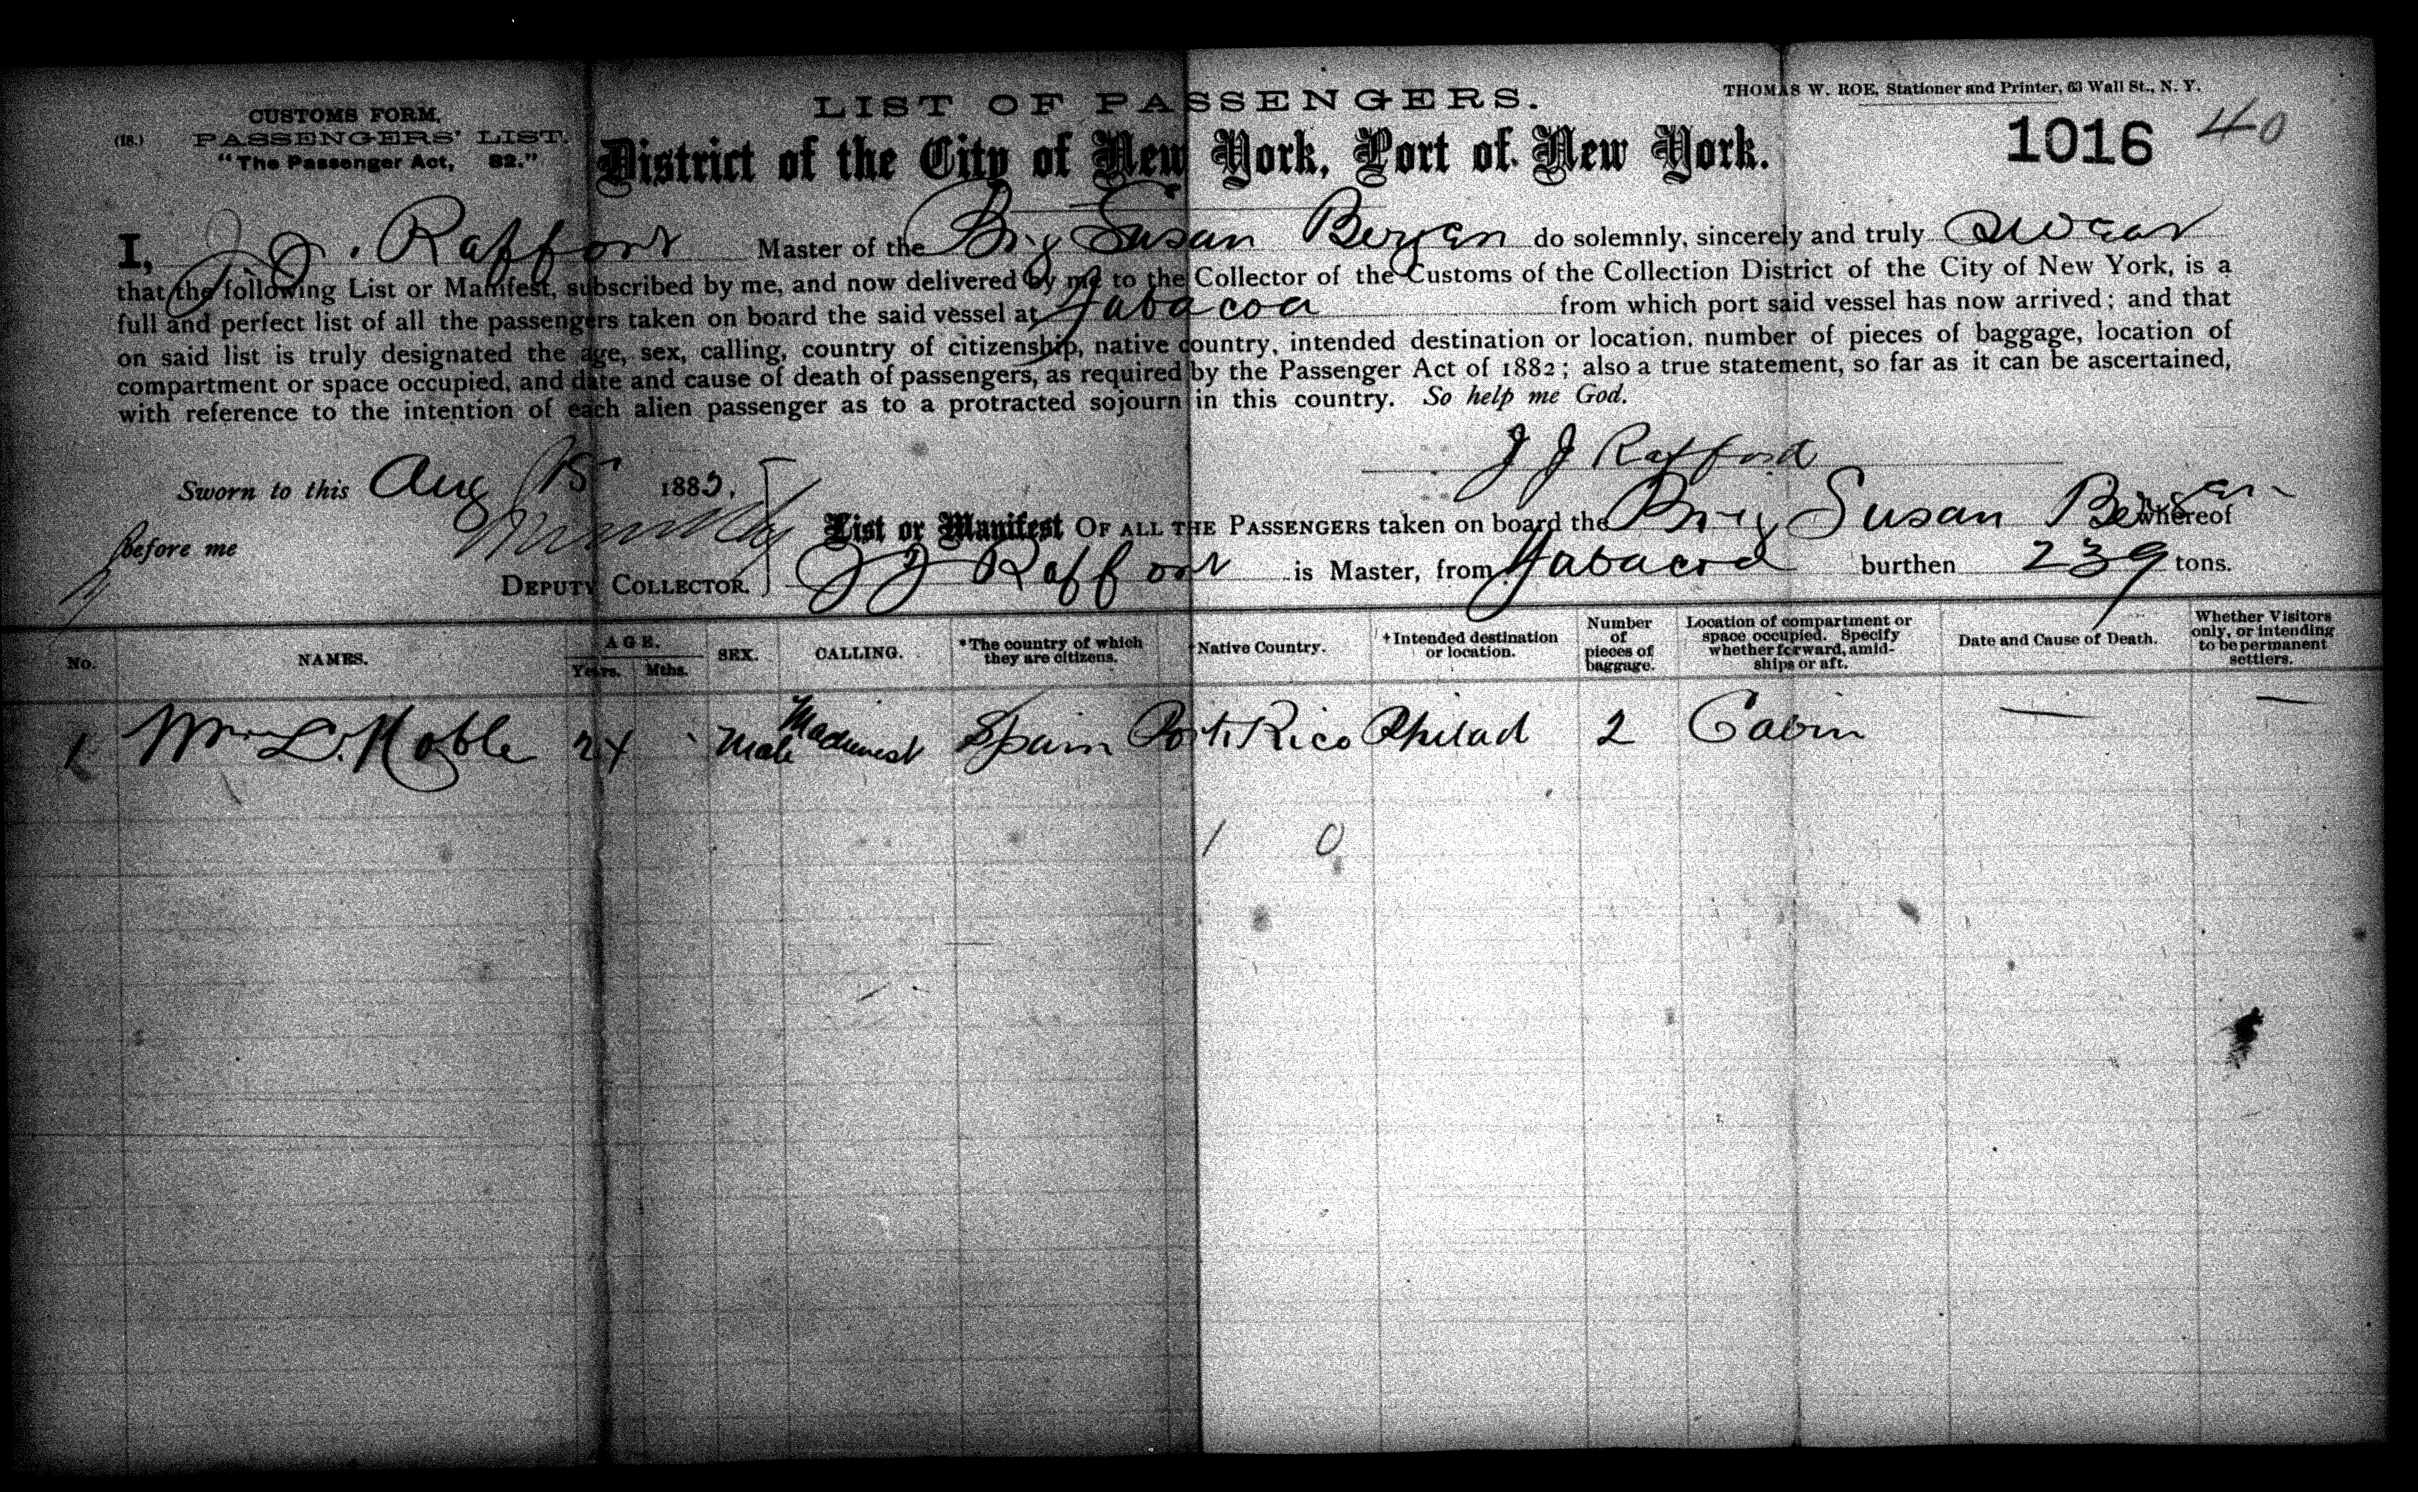 LIST OF PASSENGERS.
THOMAS W. ROE, Stationer and Printer, 63 Wall St., N. Y.
CUSTOMS FORM,
(18.) PASSENGERS' LIST.
"The Passenger Act, 82."
District of the City of New York, Port of New York.
1016 40
I, J J. Raffort Master of the Brig Susan Bergen do solemnly, sincerely and truly swear
that the following List or Manifest, subscribed by me, and now delivered by me to the Collector of the Customs of the Collection District of the City of New York, is a
full and perfect list of all the passengers taken on board the said vessel at Yabacoa from which port said vessel has now arrived; and that
on said list is truly designated the age, sex, calling, country of citizenship, native country, intended destination or location, number of pieces of baggage, location of
compartment or space occupied, and date and cause of death of passengers, as required by the Passenger Act of 1882; also a true statement, so far as it can be ascertained,
with reference to the intention of each alien passenger as to a protracted sojourn in this country. So help me God.
J J Rafford
Sworn to this Aug 15 1883,
before me
List or Manifest OF ALL THE PASSENGERS taken on board the Brig Susan Bergen whereof
DEPUTY COLLECTOR. J J Raffort is Master, from Yabacoa burthen 239 tons.
No. NAMES. AGE. Years. Mths. SEX. CALLING. *The country of which they are citizens. Native Country. †Intended destination or location. Number of pieces of baggage. Location of compartment or space occupied. Specify whether forward, amidships or aft. Date and Cause of Death. Whether Visitors only, or intending to be permanent settlers.
1 Wm L. Noble 24 Male Machinest Spain Porto Rico Philad 2 Cabin — —
1 0